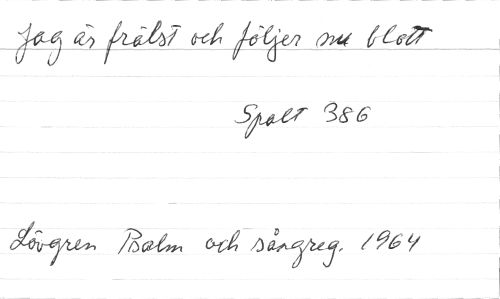 Jag är frälst och följer nu blott
Spalt 386
Lövgren Psalm och sångreg. 1964